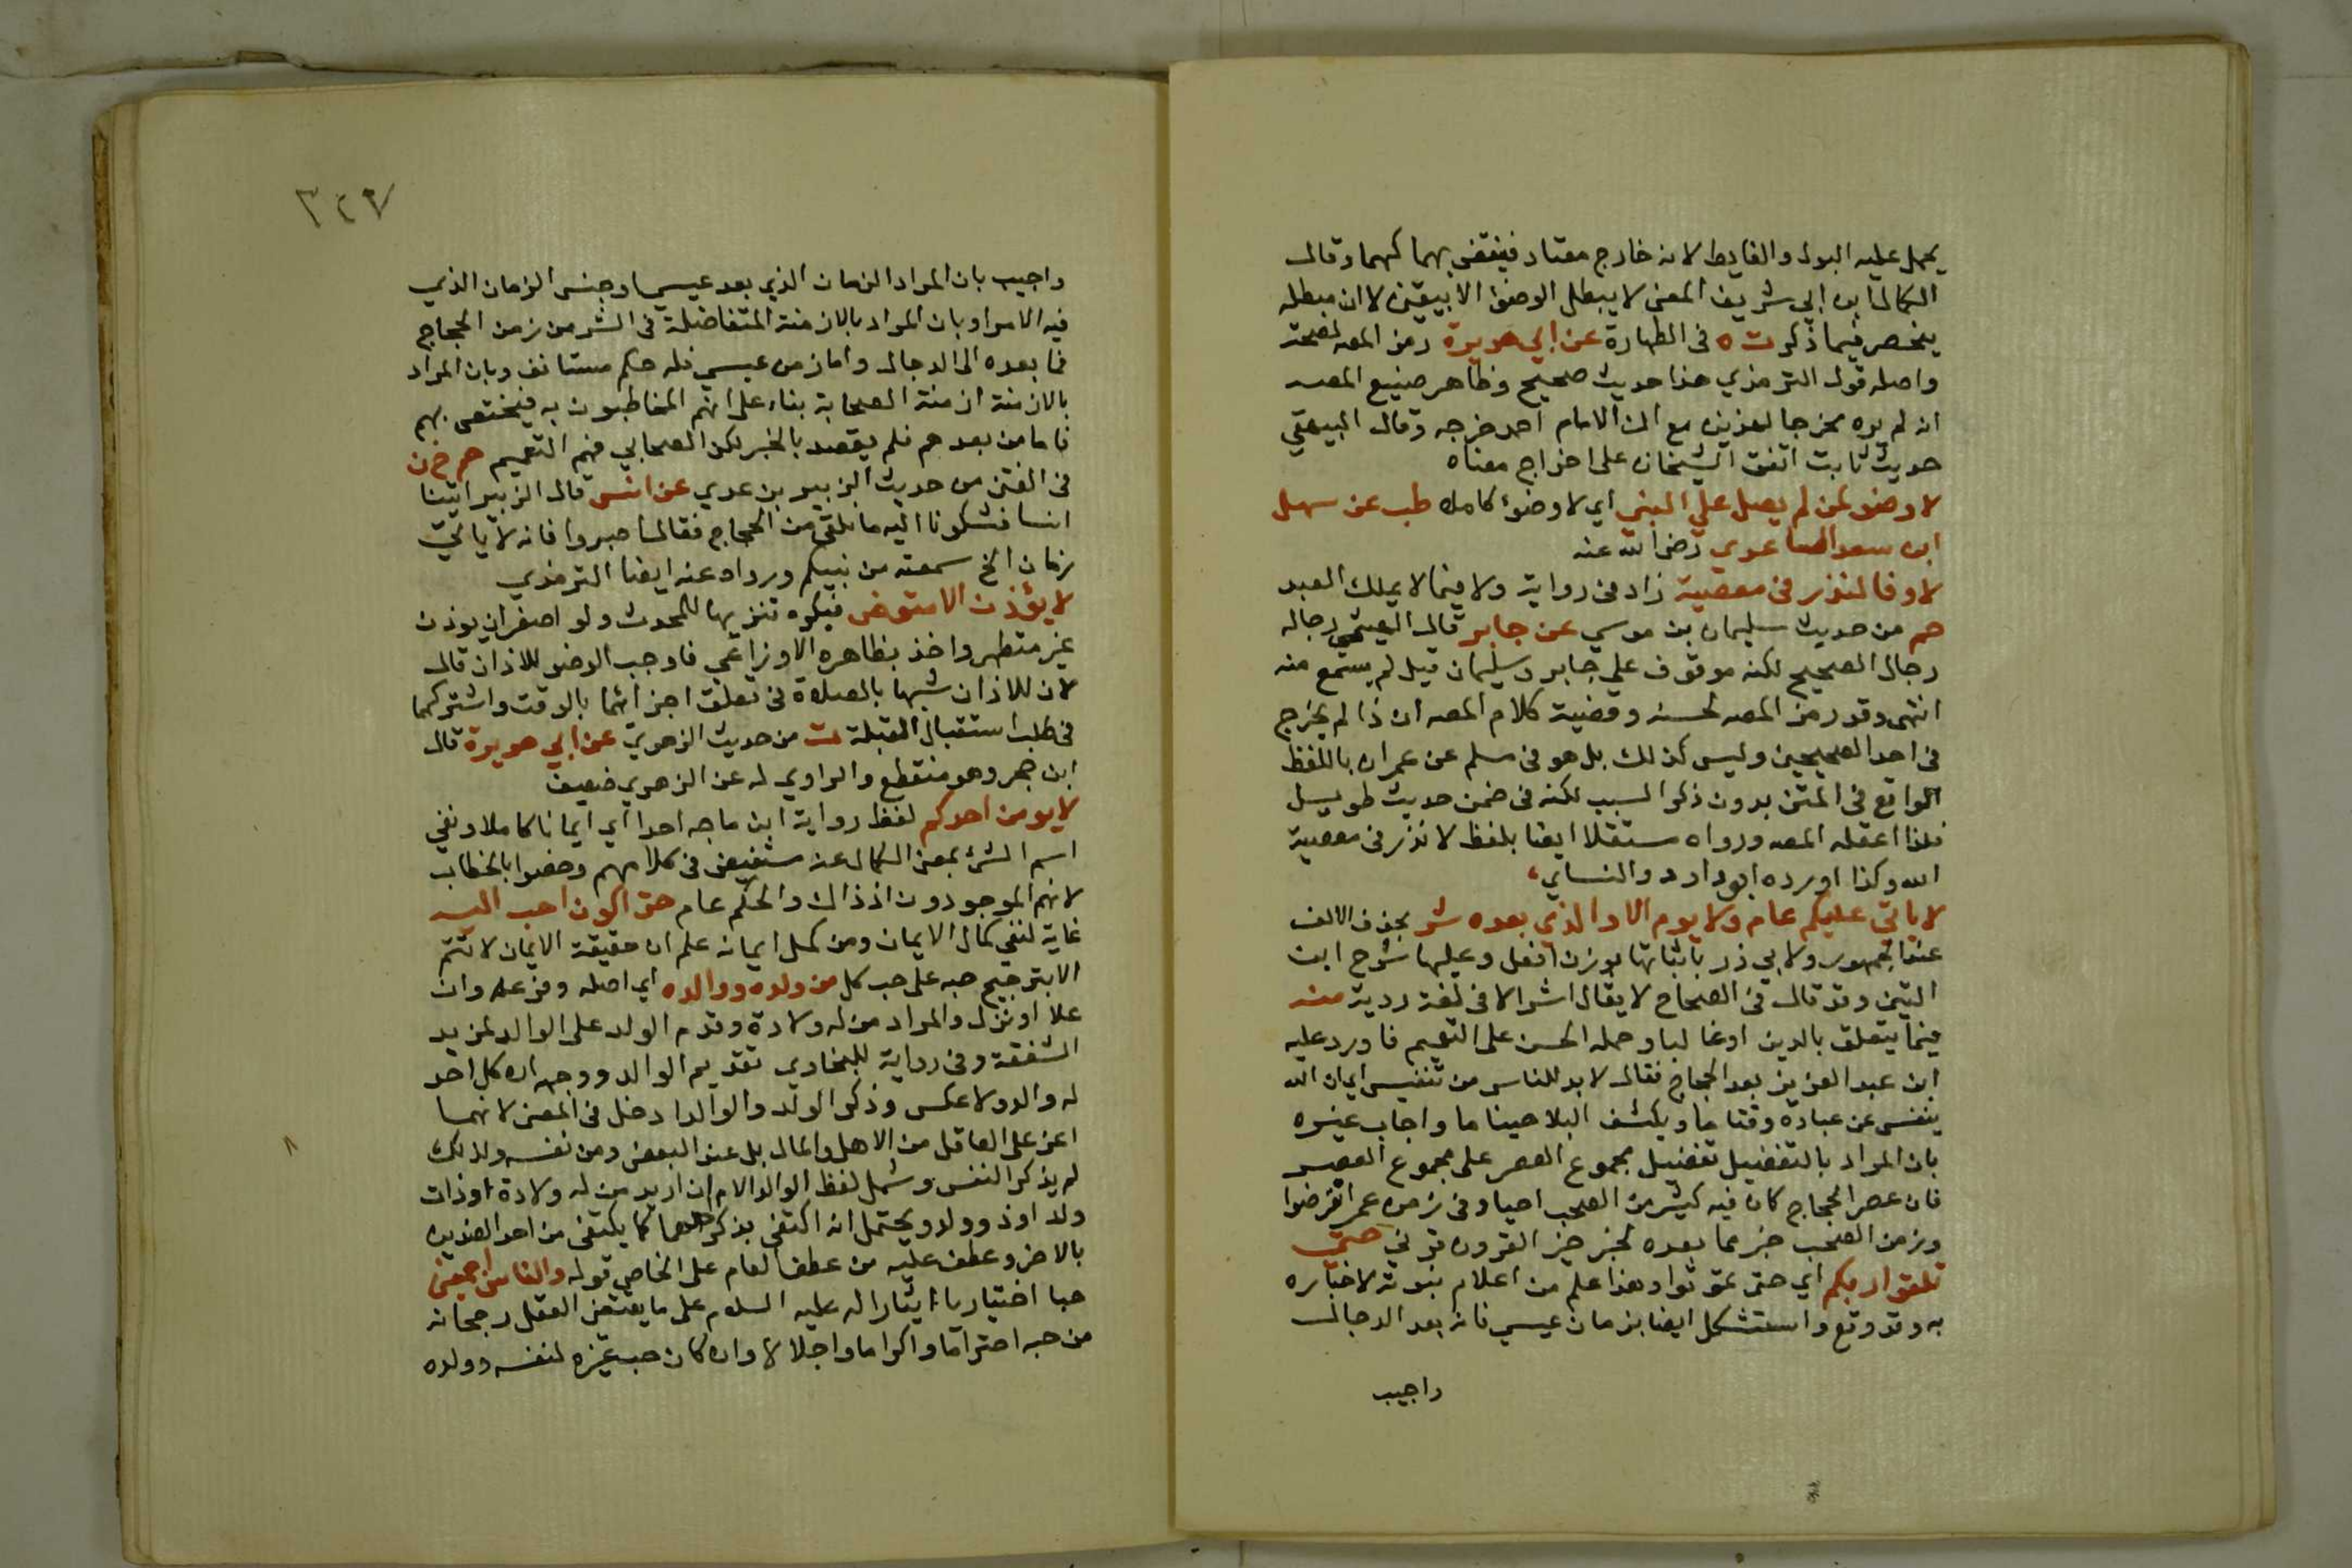 يحمل عليه البول والغايط لانه خارج معتاد فينقض بهما كهما وقال
الكمال ابن ابي شريف المعنى لا يبطل الوضو الا بيقين لا ان مبطله
ينحصر فيما ذكر ت ه فى الطهارة عن ابي هريرة رمز المصه لصحته
واصله قول الترمذي هذا حديث صحيح وظاهر صنيع المصه
انه لم يره مخرجا لهذين مع ان الامام احمد خرجه وقال البيهقي
حديث ثابت اتفق الشيخان على اخراج معناه
لا وضو لمن لم يصل علي النبي اي لا وضوء كامله طب عن سهل
ابن سعد الساعدي رضى الله عنه
لا وفا لنذر فى معصية زاد فى رواية ولا فيما لا يملك العبد
حم من حديث سليمان بن موسي عن جابر قال الهيثمي رجاله
رجال الصحيح لكنه موقوف علي جابر وسليمان قيل لم يسمع منه
انتهى وقد رمز المصه لحسنه وقضية كلام المصه ان ذا لم يخرج
فى احد الصحيحين وليس كذلك بل هو فى مسلم عن عمران باللفظ
الواقع فى المتن بدون ذكر السبب لكنه فى ضمن حديث طويل
فلذا اغفله المصه ورواه مستقلا ايضا بلفظ لا نذر فى معصية
الله وكذا اورده ابو داود والنساي
لا ياتي عليكم عام ولا يوم الا والذي بعده شر بحذف الالف
عند الجمهور ولابي ذر باثباتها بوزن افعل وعليها شرح ابن
التين وقد قال فى الصحاح لا يقال اشر الا فى لغة ردية منه
فيما يتعلق بالدين او غالبا وحمله الحسن على التعميم فاورد عليه
ابن عبد العزيز بعد الحجاج فقال لا بد للناس من تنفيس اي ان الله
ينفس عن عباده وقتا ما ويكشف البلا حينا ما واجاب غيره
بان المراد بالتفضيل تفضيل مجموع العصر على مجموع العصر
فان عصر الحجاج كان فيه كثير من الصحب احيا وفى زمن عمر انقرضوا
وزمن الصحب خير مما بعده لخبر خير القرون قرني حتى
تلقوا ربكم اي حتى تموتوا وهذا علم من اعلام نبوته لاخباره
به وقد وقع واستشكل ايضا بزمان عيسي فانه بعد الدجال
واجيب
٣٤٧
واجيب بان المراد الزمان الذي بعد عيسي او جنس الزمان الذي
فيه الامرا وبان المراد بالازمنة المتفاضلة فى الشر من زمن الحجاج
فما بعده الى الدجال واما زمن عيسي فله حكم مستانف وبان المراد
بالازمنة ازمنة الصحابة بناء على انهم المخاطبون به فيختص بهم
فاما من بعدهم فلم يقصد بالخبر لكن الصحابي فهم التعميم حم خ ن
فى الفتن من حديث الزبير بن عدي عن انس قال الزبير اتينا
انسا فشكونا اليه ما نلقى من الحجاج فقال اصبروا فانه لا ياتي
زمان الخ سمعته من نبيكم ورواه عنه ايضا الترمذي
لا يؤذن الا متوضى فيكره تنزيها للمحدث ولو اصغر ان يوذن
غير متطهر واخذ بظاهره الاوزاعي فاوجب الوضو للاذان قال
لان للاذان شبها بالصلاة فى تعلق اجزائهما بالوقت واشتركهما
فى طلب استقبال القبلة ت من حديث الزهري عن ابي هريرة قال
ابن حجر وهو منقطع والراوي له عن الزهري ضعيف
لا يومن احدكم لفظ رواية ابن ماجه احد اي ايمانا كاملا ونفي
اسم الشئ بمعنى الكمال عنه مستفيض فى كلامهم وخصوا بالخطاب
لانهم الموجودون اذ ذاك والحكم عام حتى اكون احب اليه
غاية لنفي كمال الايمان ومن كمل ايمانه علم ان حقيقة الايمان لا تتم
الا بترجيح حبه على حب كل من ولده ووالده اي اصله وفرعه وان
علا او نزل والمراد من له ولادة وقدم الولد على الوالد لمزيد
الشفقة وفى رواية للبخاري تقديم الوالد ووجه ان كل احد
له والد ولا عكس وذكر الولد والوالد ادخل فى المعنى لانهما
اعز على العاقل من الاهل والمال بل عند البعض ومن نفسه ولذلك
لم يذكر النفس وشمل لفظ الوالد الام ان اريد من له ولادة او ذات
ولد او ذو ولد ويحتمل انه اكتفى بذكر احدهما كما يكتفى من احد الضدين
بالاخر وعطف عليه من عطف العام على الخاص قوله والناس اجمعين
حبا اختياريا ايثارا له عليه السلام على ما يقتضى العقل رجحانه
من حبه احتراما واكراما واجلالا وان كان حب غيره لنفسه وولده